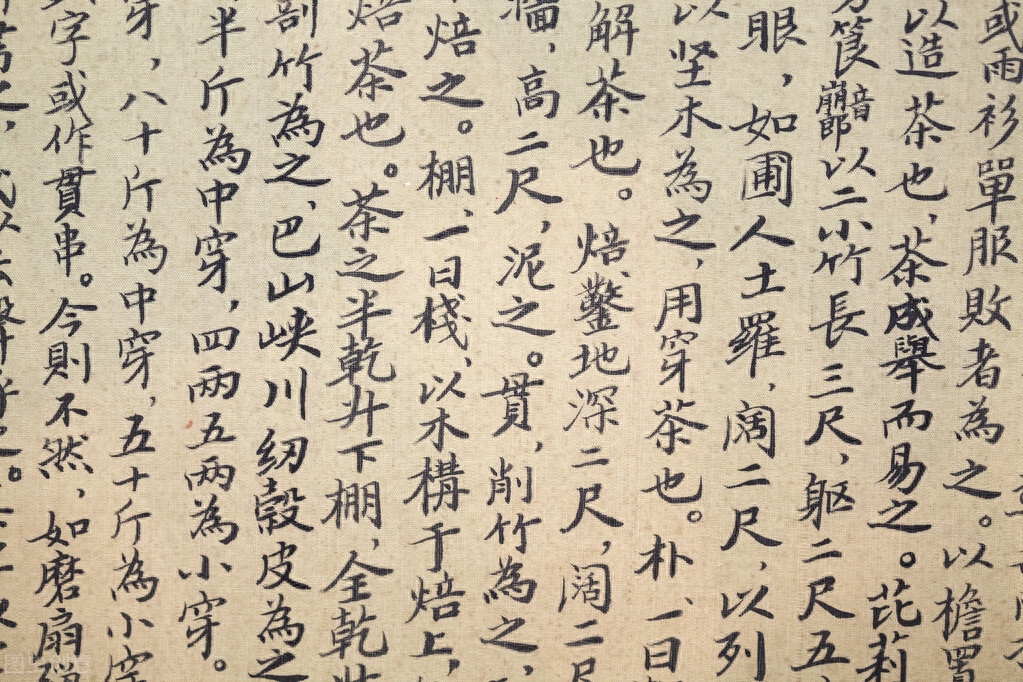 或雨衫單服敗者為之。以檐置
以造茶也,茶成舉而易之。芘莉
筤崩音郎以二小竹長三尺,躯二尺五
眼,如圃人土羅,阔二尺,以列
以坚木為之,用穿茶也。朴,一曰
解茶也。焙,鑿地深二尺,阔二尺
墻,高二尺,泥之。貫,削竹為之,
焙之。棚,一曰棧,以木構于焙上,
焙茶也。茶之半乾,廾下棚,全乾,廾
剖竹為之、巴山峡川纫榖皮為之
半斤為中穿,四两五两為小穿。
穿,八十斤為中穿,五十斤為小穿
字或作貫串。今則不然,如磨扇